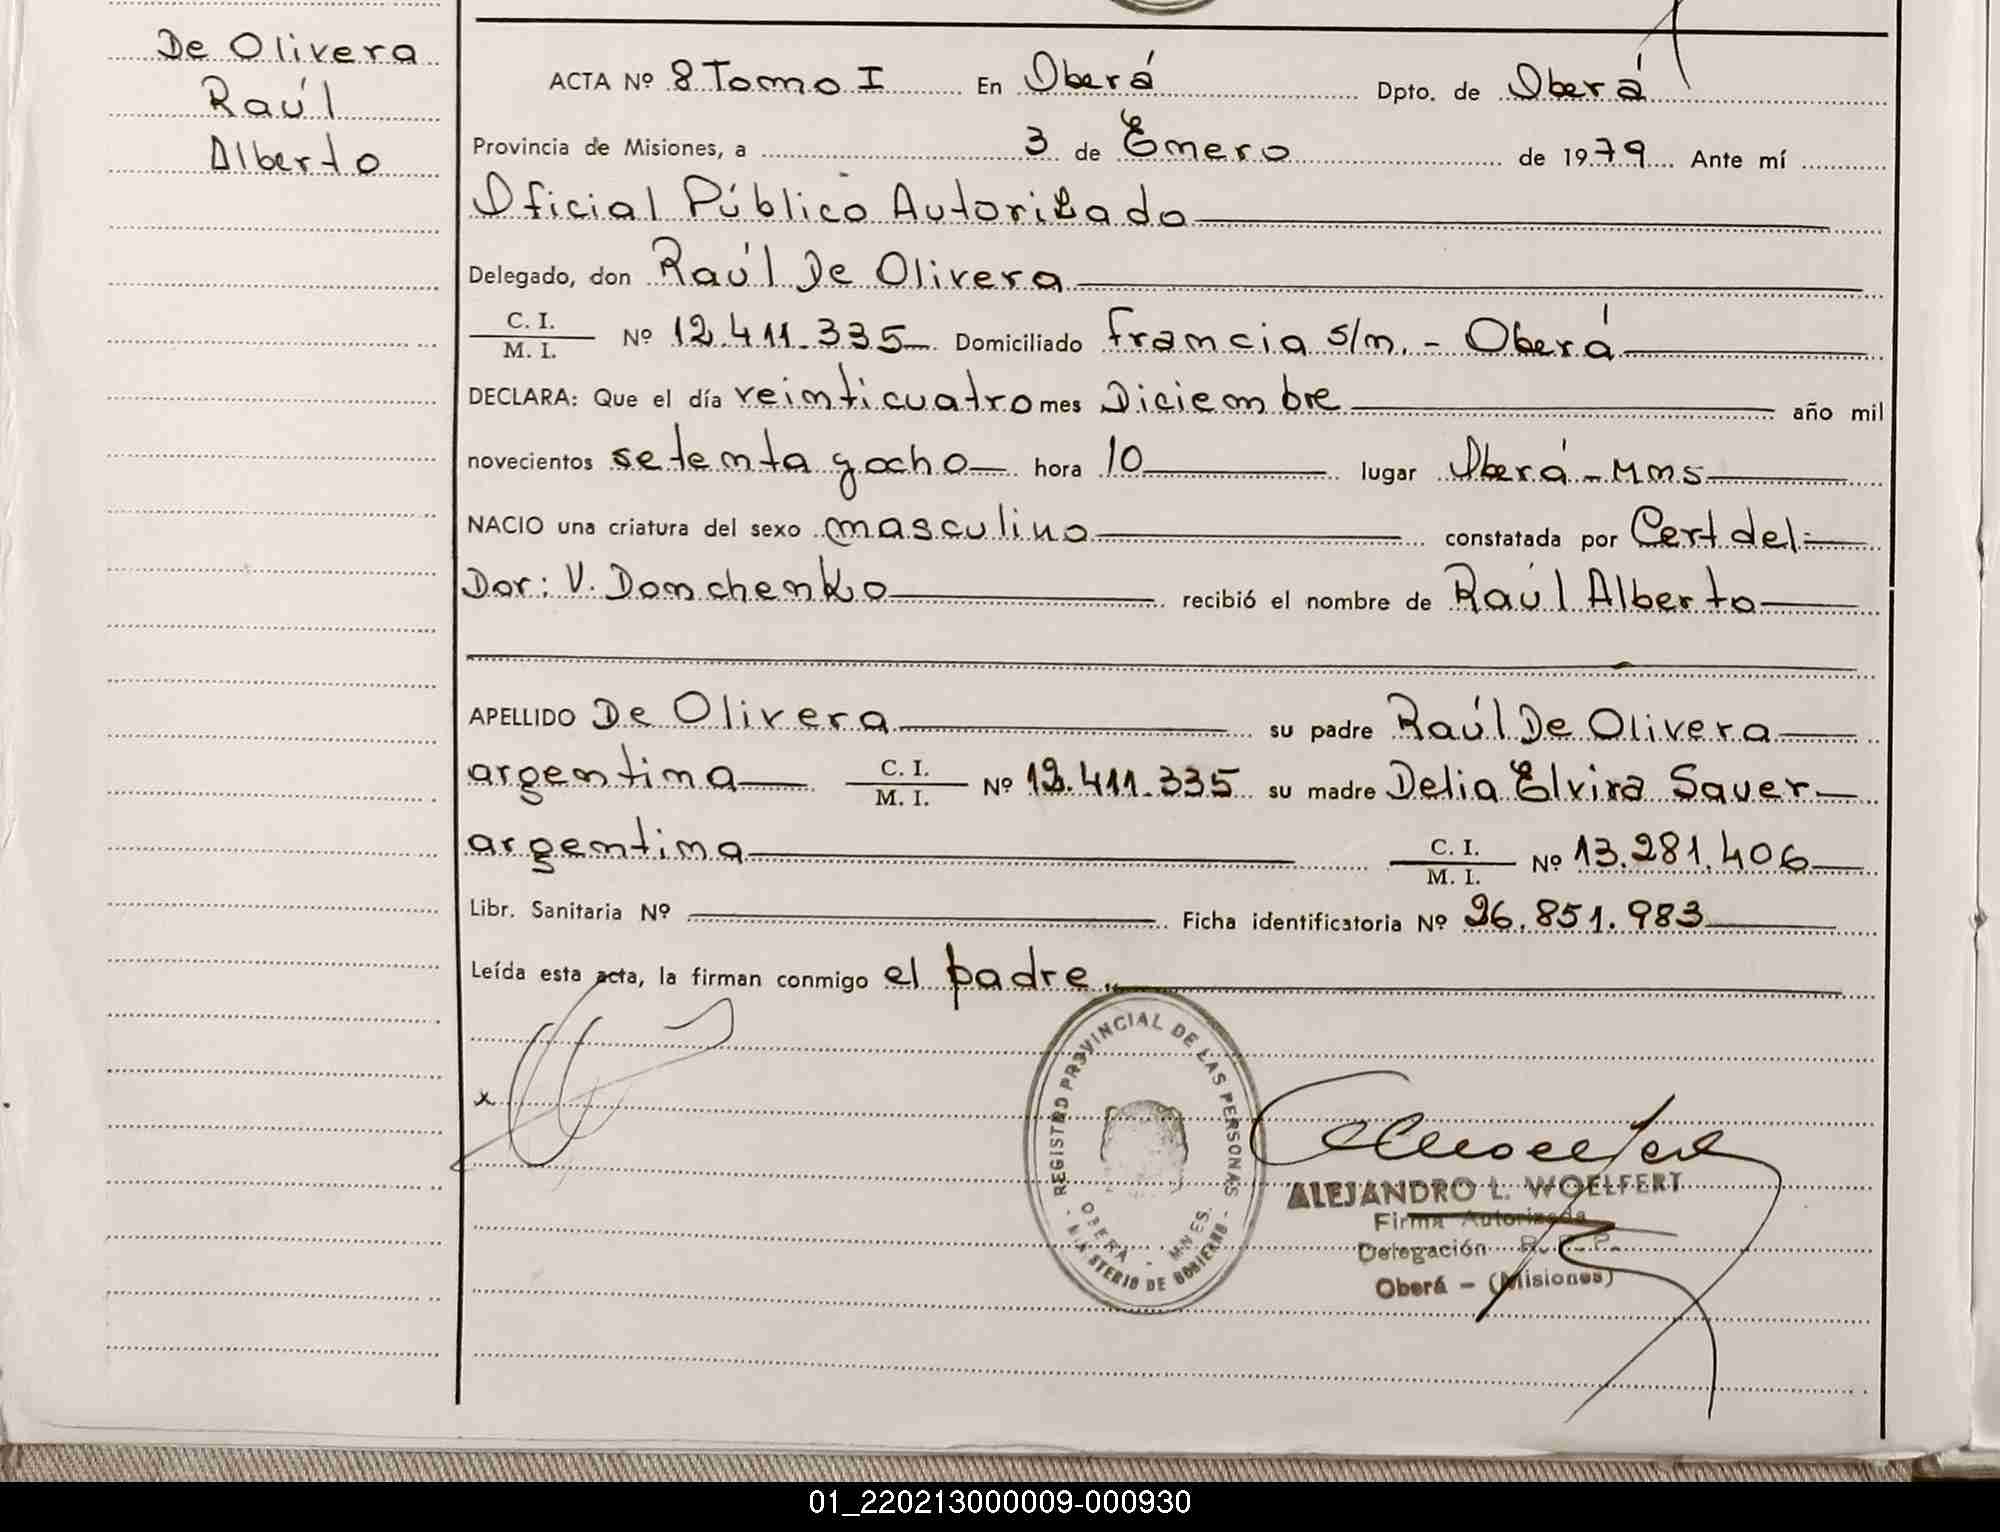 De Olivera
Raúl
Alberto
ACTA Nº 8 Tomo I En Oberá Dpto. de Oberá
Provincia de Misiones, a 3 de Enero de 1979 Ante mí
Oficial Público Autorizado
Delegado, don Raúl De Olivera
C. I.
M. I.
Nº 12.411.335 Domiciliado Francia s/n. - Oberá
DECLARA: Que el día veinticuatro mes Diciembre año mil
novecientos setenta y ocho hora 10 lugar Oberá - Mnes
NACIO una criatura del sexo masculino constatada por Cert del
Dor: V. Domchenko recibió el nombre de Raúl Alberto
APELLIDO De Olivera su padre Raúl De Olivera
argentina C. I. / M. I. Nº 12.411.335 su madre Delia Elvira Sauer
argentina C. I. / M. I. Nº 13.281.406
Libr. Sanitaria Nº Ficha identificatoria Nº 26.851.983
Leída esta acta, la firman conmigo el padre
x
REGISTRO PROVINCIAL DE LAS PERSONAS
OBERA - MNES.
- MINISTERIO DE GOBIERNO -
ALEJANDRO L. WOELFERT
Firma Autorizada
Delegación R. P. P.
Oberá - (Misiones)
01_220213000009-000930